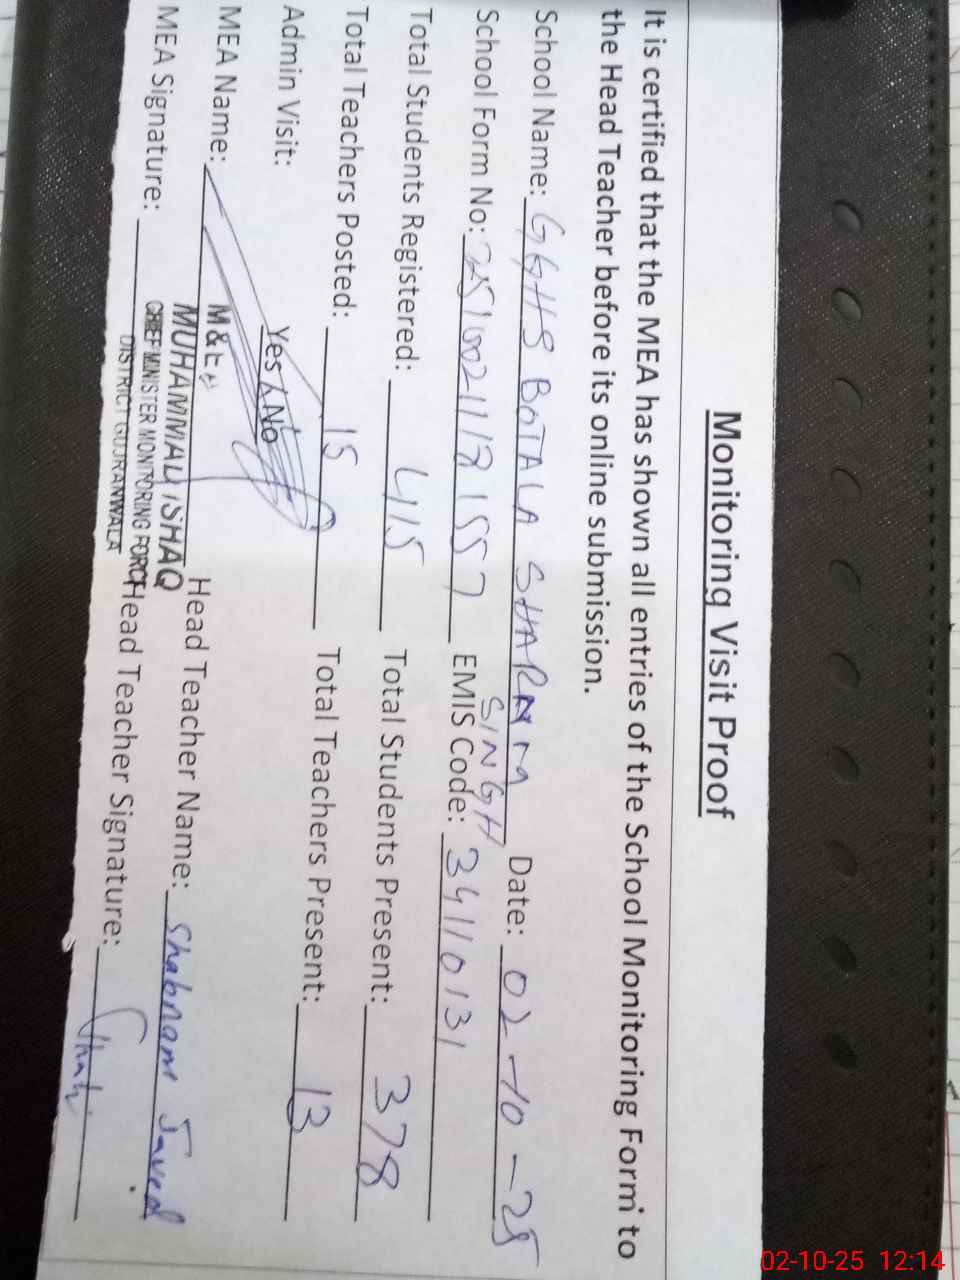 Monitoring Visit Proof
It is certified that the MEA has shown all entries of the School Monitoring Form to
the Head Teacher before its online submission.
School Name: GGHS BOTALA SHARM SINGH Date: 02-10-25
School Form No: EMIS Code: 34110131
Total Students Registered: 415 Total Students Present: 378
Total Teachers Posted: 15 Total Teachers Present: 13
Admin Visit: Yes / No
MEA Name: MUHAMMAD ISHAQ Head Teacher Name: Shabnam Javed
MEA Signature: CHIEF MINISTER MONITORING FORCE Head Teacher Signature:
DISTRICT GUJRANWALA
02-10-25 12:14